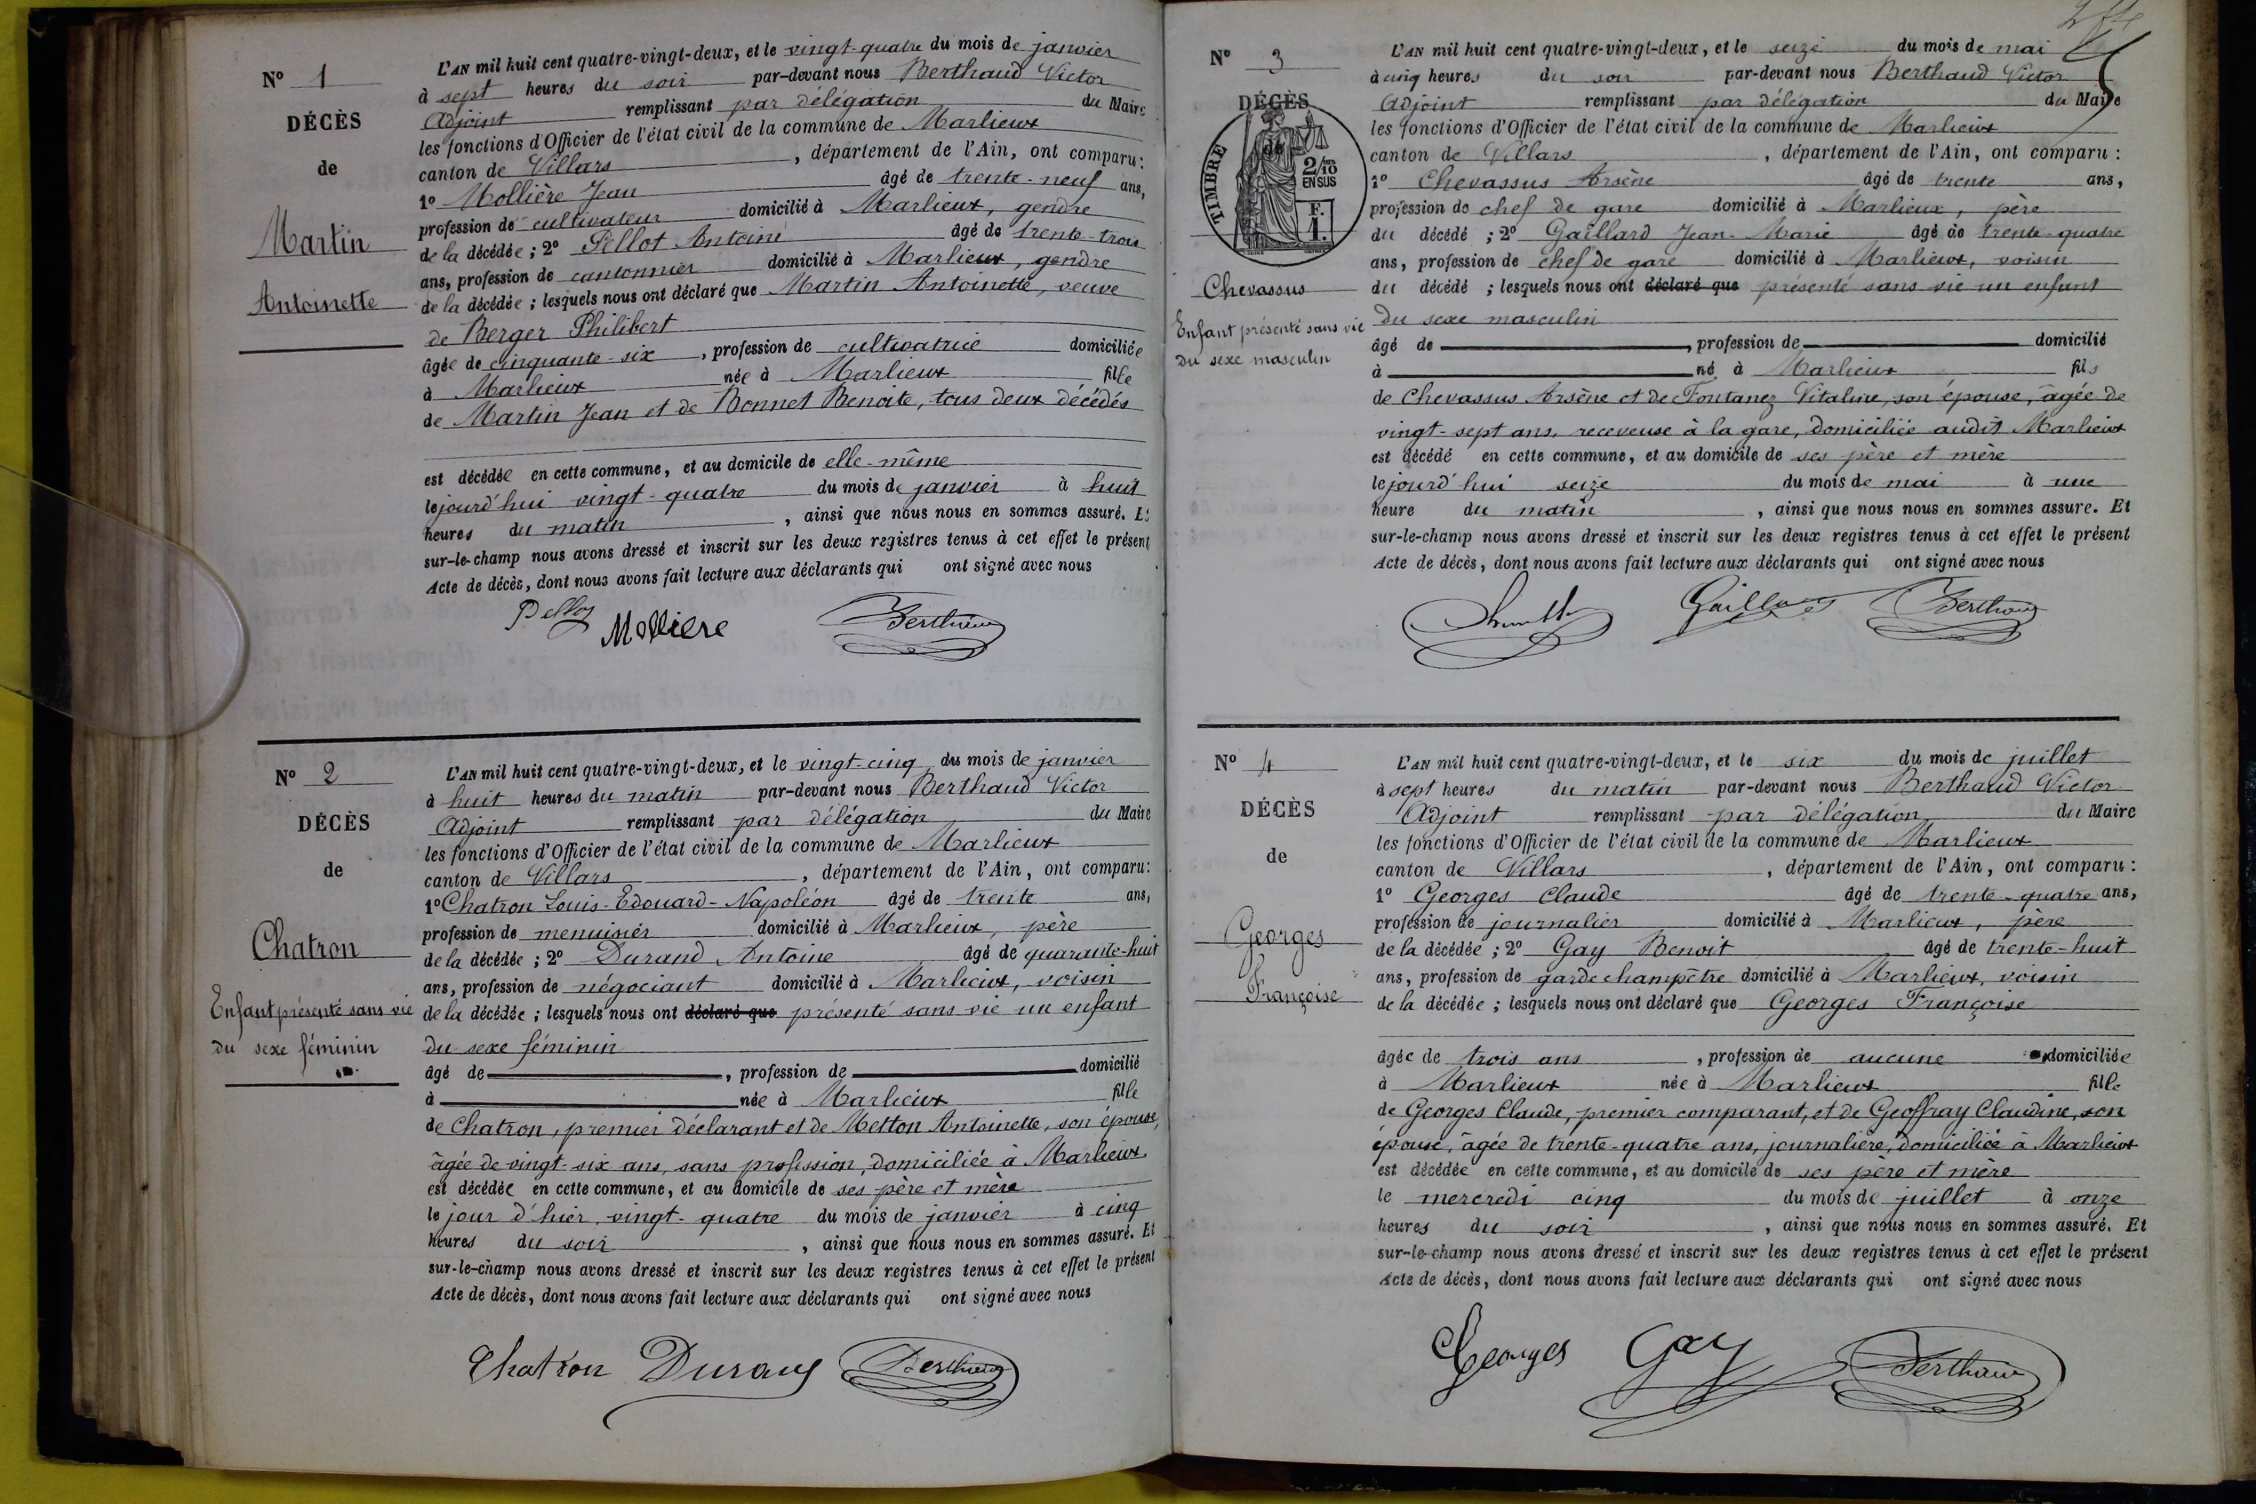 N° 1
DÉCÈS
de
Martin
Antoinette
L'AN mil huit cent quatre-vingt-deux, et le vingt-quatre du mois de janvier
à sept heures du soir par-devant nous Berthaud Victor
Adjoint remplissant par délégation du Maire
les fonctions d'Officier de l'état civil de la commune de Marlieux
canton de Villars, département de l'Ain, ont comparu:
1° Mollière Jean âgé de trente-neuf ans,
profession de cultivateur domicilié à Marlieux, gendre
de la décédée; 2° Pellot Antoine âgé de trente-trois
ans, profession de cantonnier domicilié à Marlieux, gendre
de la décédée; lesquels nous ont déclaré que Martin Antoinette, veuve
de Berger Philibert
âgée de cinquante-six, profession de cultivatrice domiciliée
à Marlieux née à Marlieux fille
de Martin Jean et de Bonnet Benoite, tous deux décédés
est décédée en cette commune, et au domicile de elle-même
le jourd'hui vingt-quatre du mois de janvier à huit
heures du matin, ainsi que nous nous en sommes assuré. Et
sur-le-champ nous avons dressé et inscrit sur les deux registres tenus à cet effet le présent
Acte de décès, dont nous avons fait lecture aux déclarants qui ont signé avec nous
Mollière Berthaud
N° 2
DÉCÈS
de
Chatron
Enfant présenté sans vie
du sexe féminin
L'AN mil huit cent quatre-vingt-deux, et le vingt-cinq du mois de janvier
à huit heures du matin par-devant nous Berthaud Victor
Adjoint remplissant par délégation du Maire
les fonctions d'Officier de l'état civil de la commune de Marlieux
canton de Villars, département de l'Ain, ont comparu:
1° Chatron Louis-Edouard-Napoléon âgé de trente ans,
profession de menuisier domicilié à Marlieux, père
de la décédée; 2° Durand Antoine âgé de quarante-huit
ans, profession de négociant domicilié à Marlieux, voisin
de la décédée; lesquels nous ont déclaré que présenté sans vie un enfant
du sexe féminin
âgé de, profession de domicilié
à née à Marlieux fille
de Chatron, premier déclarant et de Metton Antoinette, son épouse,
âgée de vingt-six ans, sans profession, domiciliée à Marlieux
est décédée en cette commune, et au domicile de ses père et mère
le jour d'hier vingt-quatre du mois de janvier à cinq
heures du soir, ainsi que nous nous en sommes assuré. Et
sur-le-champ nous avons dressé et inscrit sur les deux registres tenus à cet effet le présent
Acte de décès, dont nous avons fait lecture aux déclarants qui ont signé avec nous
Chatron Durand Berthaud
N° 3
DÉCÈS
de
TIMBRE
2/10
EN SUS
F.
1.
Chevassus
Enfant présenté sans vie
du sexe masculin
L'AN mil huit cent quatre-vingt-deux, et le seize du mois de mai
à cinq heures du soir par-devant nous Berthaud Victor
Adjoint remplissant par délégation du Maire
les fonctions d'Officier de l'état civil de la commune de Marlieux
canton de Villars, département de l'Ain, ont comparu:
1° Chevassus Arsène âgé de trente ans,
profession de chef de gare domicilié à Marlieux, père
du décédé; 2° Gaillard Jean-Marie âgé de trente-quatre
ans, profession de chef de gare domicilié à Marlieux, voisin
du décédé; lesquels nous ont déclaré que présenté sans vie un enfant
du sexe masculin
âgé de, profession de domicilié
à né à Marlieux fils
de Chevassus Arsène et de Fontanez Vitaline, son épouse, âgée de
vingt-sept ans, receveuse à la gare, domiciliée audit Marlieux
est décédé en cette commune, et au domicile de ses père et mère
le jourd'hui seize du mois de mai à une
heure du matin, ainsi que nous nous en sommes assuré. Et
sur-le-champ nous avons dressé et inscrit sur les deux registres tenus à cet effet le présent
Acte de décès, dont nous avons fait lecture aux déclarants qui ont signé avec nous
Gaillard Berthaud
N° 4
DÉCÈS
de
Georges
Françoise
L'AN mil huit cent quatre-vingt-deux, et le six du mois de juillet
à sept heures du matin par-devant nous Berthaud Victor
Adjoint remplissant par délégation du Maire
les fonctions d'Officier de l'état civil de la commune de Marlieux
canton de Villars, département de l'Ain, ont comparu:
1° Georges Claude âgé de trente-quatre ans,
profession de journalier domicilié à Marlieux, père
de la décédée; 2° Gay Benoit âgé de trente-huit
ans, profession de garde champêtre domicilié à Marlieux, voisin
de la décédée; lesquels nous ont déclaré que Georges Françoise
âgée de trois ans, profession de aucune domiciliée
à Marlieux née à Marlieux fille
de Georges Claude, premier comparant, et de Geoffray Claudine, son
épouse, âgée de trente-quatre ans, journalière, domiciliée à Marlieux
est décédée en cette commune, et au domicile de ses père et mère
le mercredi cinq du mois de juillet à onze
heures du soir, ainsi que nous nous en sommes assuré. Et
sur-le-champ nous avons dressé et inscrit sur les deux registres tenus à cet effet le présent
Acte de décès, dont nous avons fait lecture aux déclarants qui ont signé avec nous
Georges Gay Berthaud